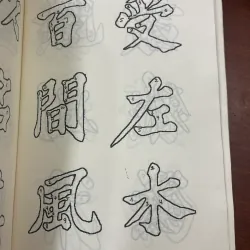 受左水
百間風